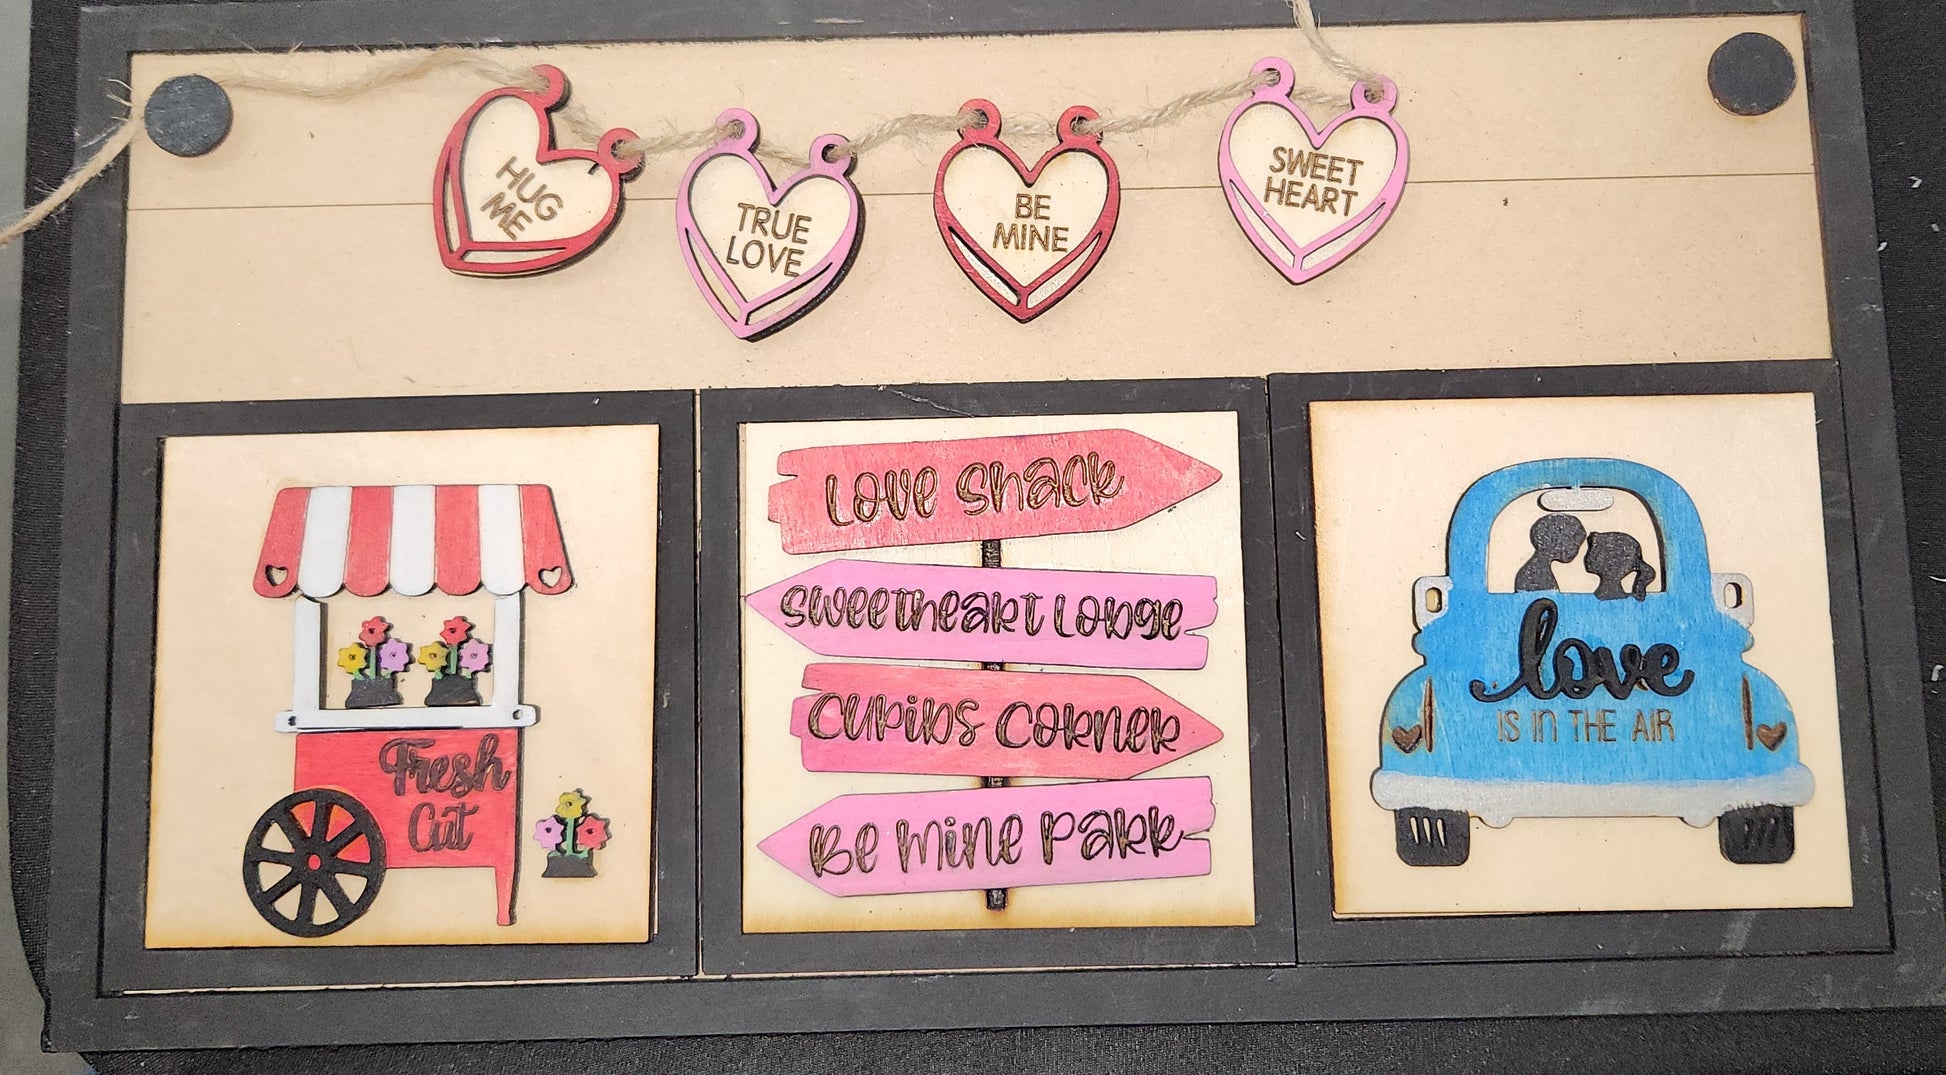 HUG
ME
TRUE
LOVE
BE
MINE
SWEET
HEART
Fresh
Cut
Love Shack
Sweetheart Lodge
Cupids Corner
Be Mine Park
love
IS IN THE AIR